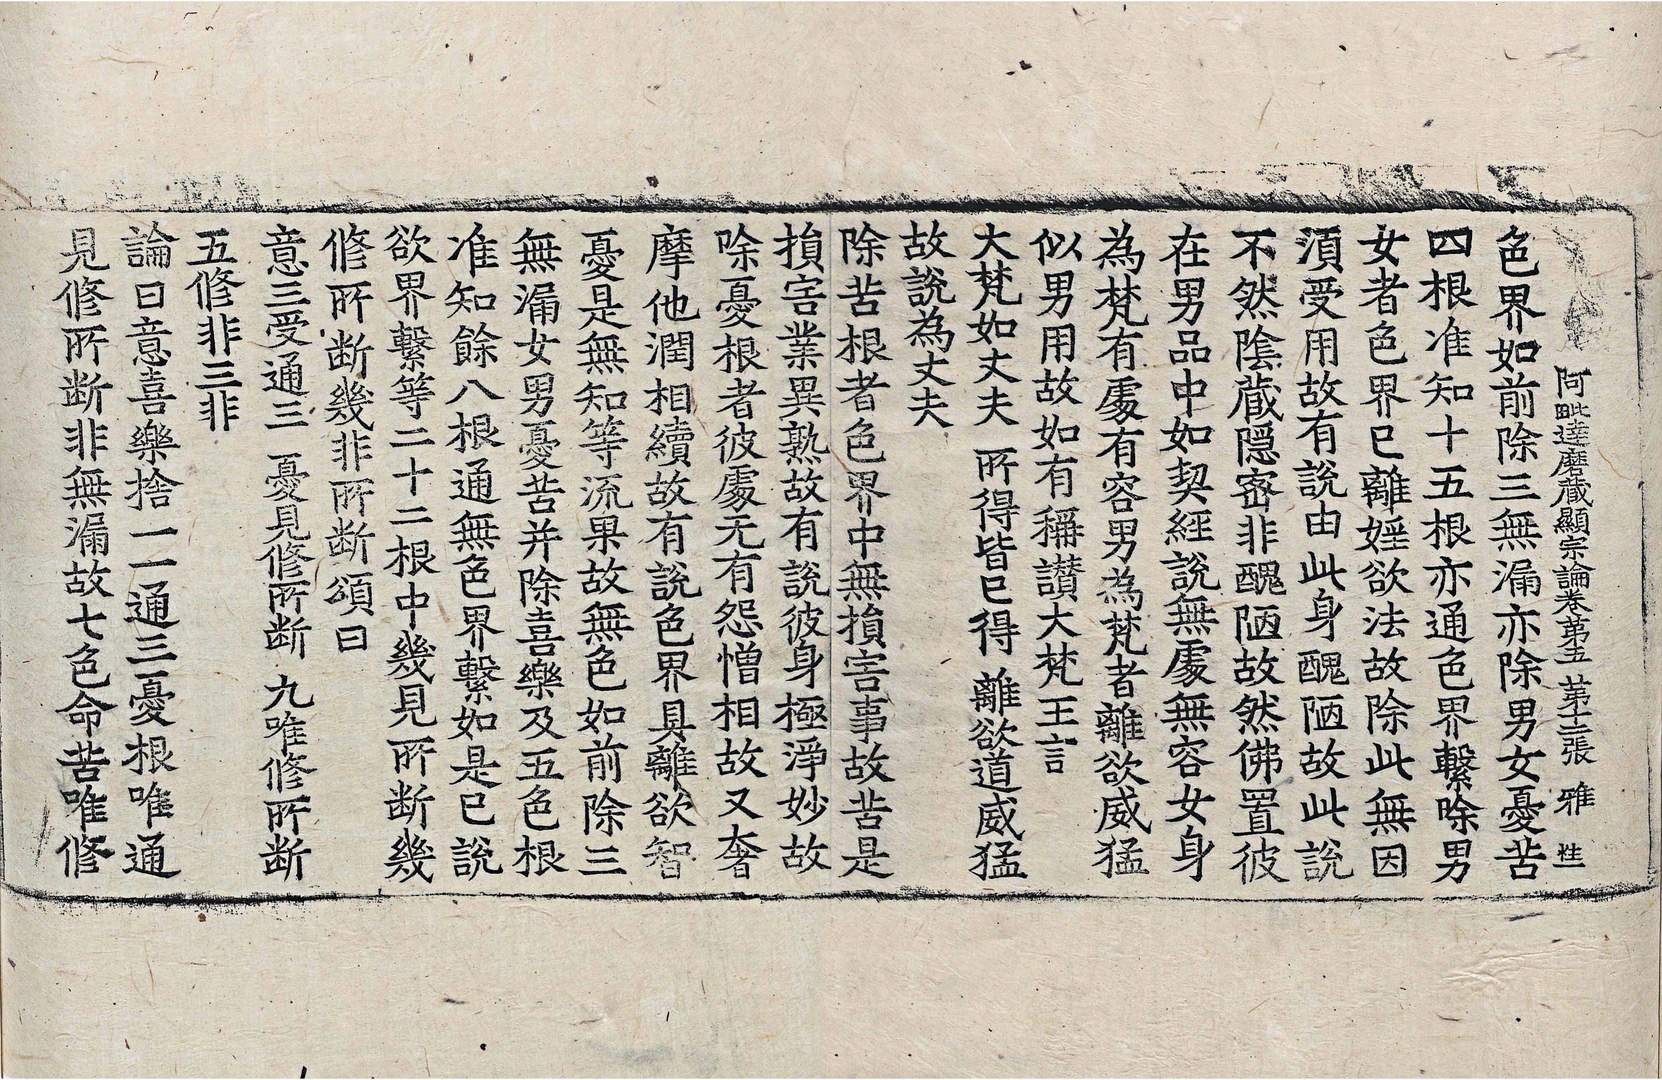 阿毗達磨藏顯宗論卷第五 第十二張 雅 性
色界如前除三無漏亦除男女憂苦
四根准知十五根亦通色界繫除男
女者色界已離婬欲法故除此無因
湏受用故有說由此身醜陋故此說
不然陰藏隱密非醜陋故然佛置彼
在男品中如契經說無處無容女身
為梵有處有容男為梵者離欲威猛
似男用故如有稱讃大梵王言
大梵如丈夫 所得皆已得 離欲道威猛
故說為丈夫
除苦根者色界中無損害事故苦是
損害業異熟故有說彼身極淨妙故
除憂根者彼處无有怨憎相故又奢
摩他潤相續故有說色界具離欲智
憂是無知等流果故無色如前除三
無漏女男憂苦并除喜樂及五色根
准知餘八根通無色界繫如是已說
欲界繫等二十二根中幾見所斷幾
修所斷幾非所斷頌曰
意三受通三 憂見修所斷 九唯修所斷
五修非三非
論曰意喜樂捨一一通三憂根唯通
見修所斷非無漏故七色命苦唯修